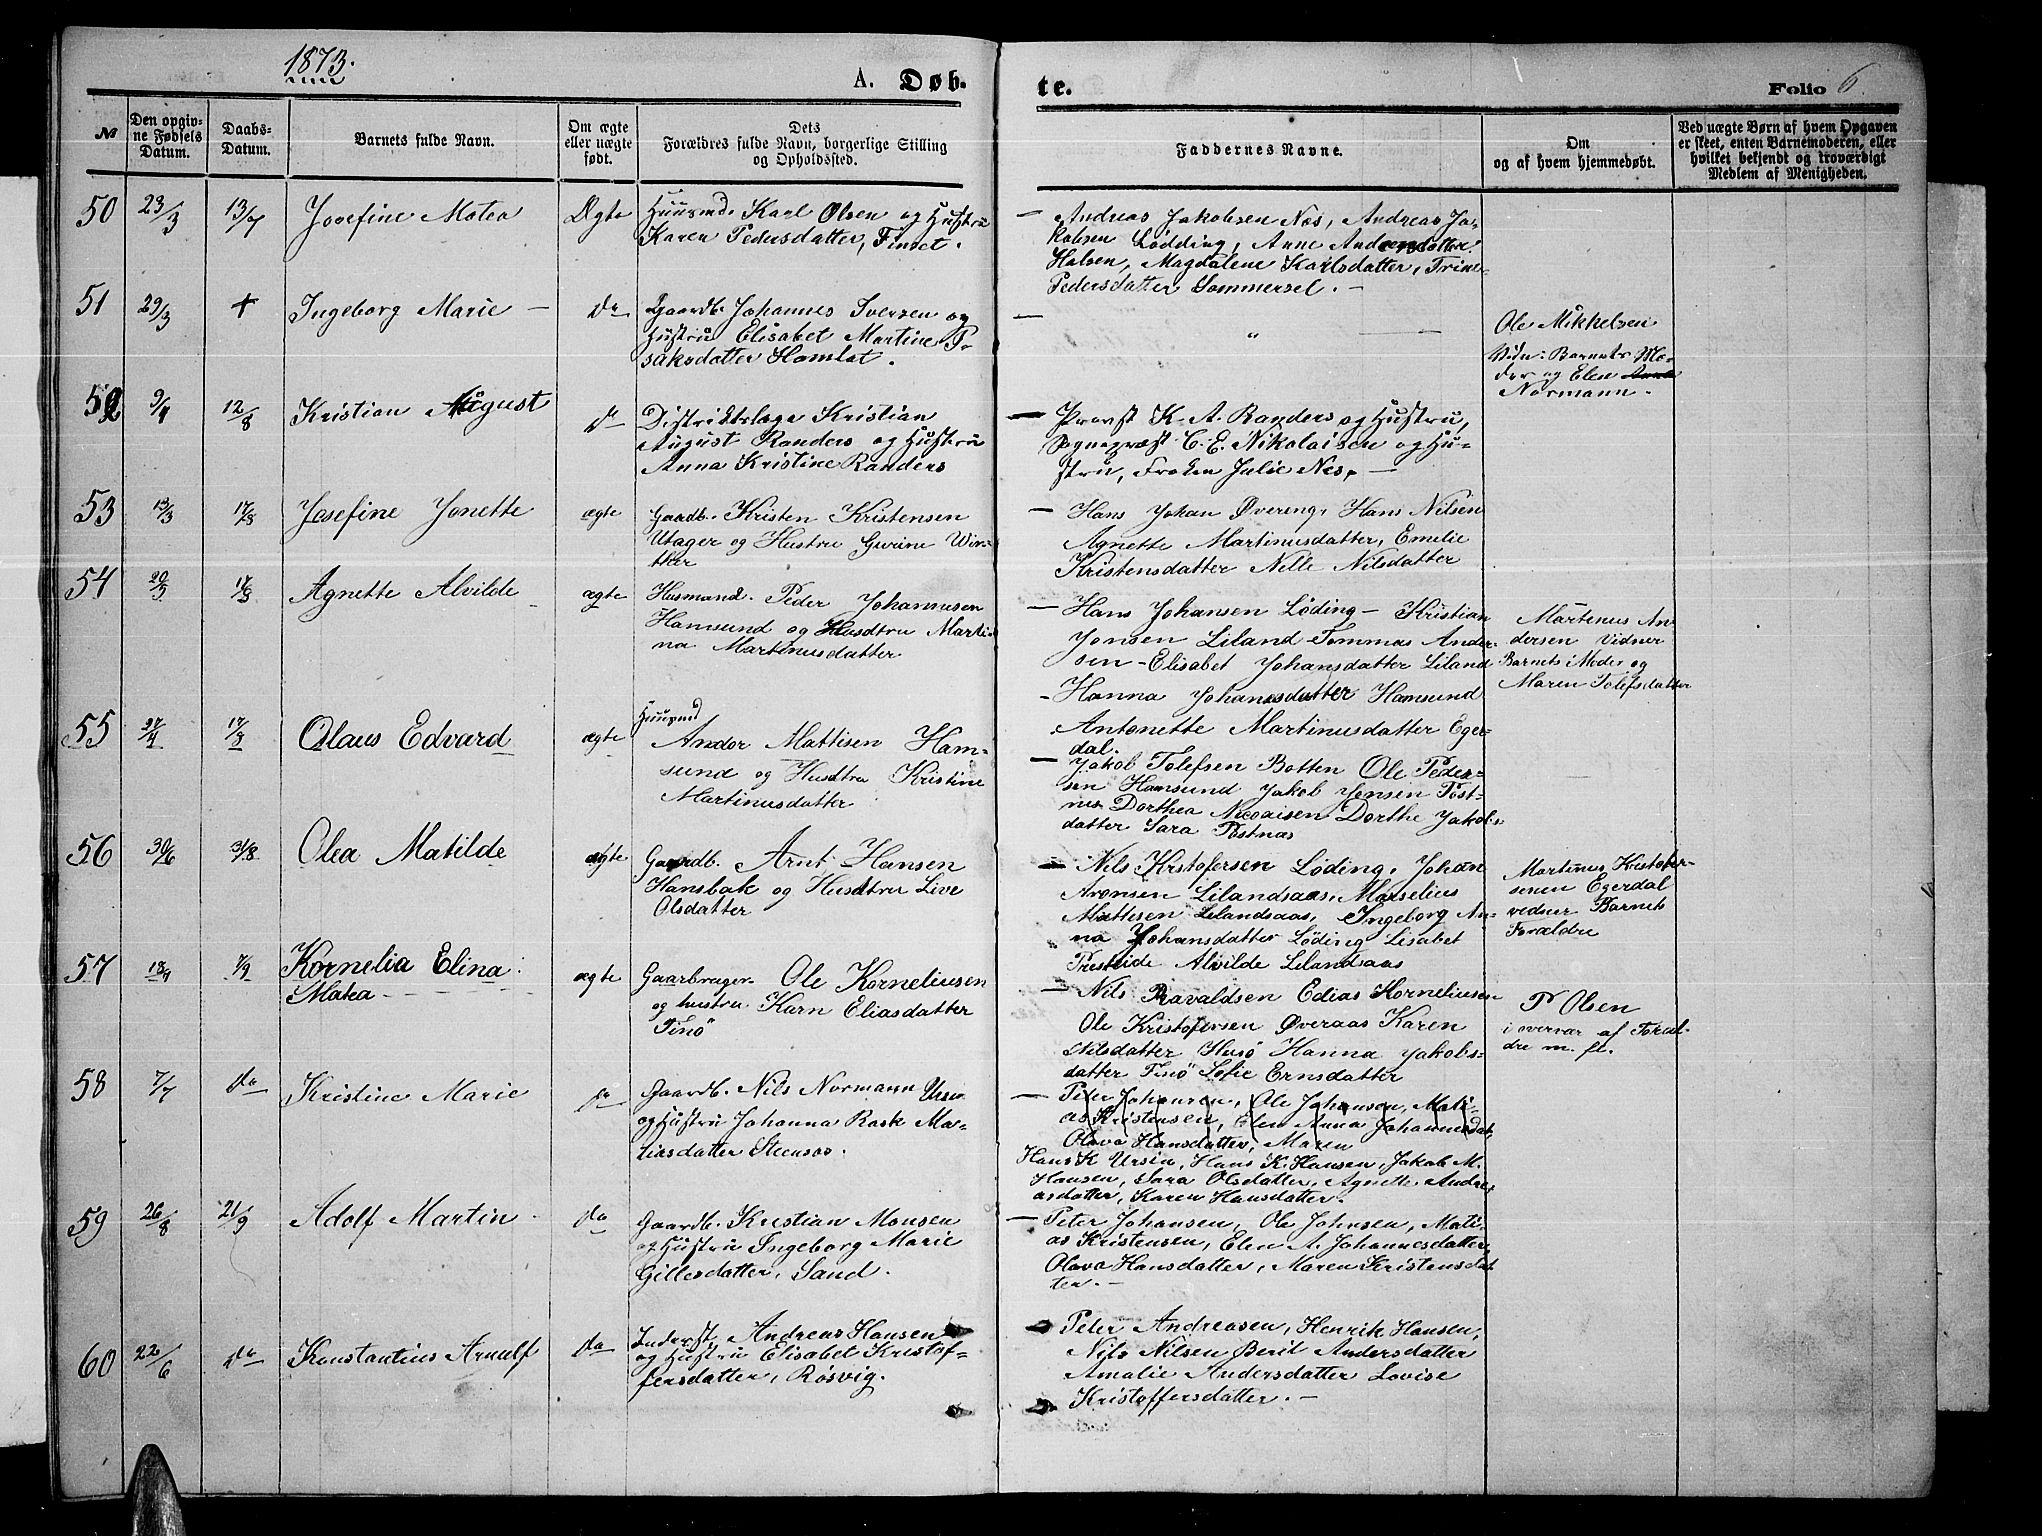 1873.
A. Døb-
te.
Folio 6.
№
Den opgiv-
ne Fødsels
Datum.
Daabs-
Datum.
Barnets fulde Navn.
Om ægte
eller uægte
født.
Dets
Forældres fulde Navn, borgerlige Stilling
og Opholdssted.
Faddernes Navne.
Om
og af hvem hjemmedøbt.
Ved uægte Børn af hvem Opgaven
er skeet, enten Barnemoderen, eller
hvilket bekjendt og troværdigt
Medlem af Menigheden.
50 23/3 13/7 Josefine Matea Ægte
Huusmd. Karl Olsen og Hustru
Karen Pedersdatter, Finset.
— Andreas Jakobsen Nes, Andreas Ja-
kobsen Lødding, Anne Andersdatter
Halsen, Magdalene Karlsdatter, Trine
Pedersdatter Sommersel. —
51 29/3 + Ingeborg Marie — do
Gaardb. Johannes Iversen og
Hustru Elisabet Martine I-
saksdatter Hamlot.
— „ —
Ole Mikkelsen
Vidn: Barnets Mo-
der og Elen
Normann.
52 9/4 12/8 Kristian August do
Distriktslæge Kristian
August Randers og Hustru
Anna Kristine Randers
— Provst K. A. Randers og Hustru,
Sognepræst C. E. Nikolaisen og Hu-
stru, Frøken Julie Nes, —
53 13/3 17/8 Josefine Jonette ægte
Gaardb. Kristen Kristensen
Utager og Hustru Gurine Win-
ther
— Hans Johan Øvereng, Hans Nilsen
Agnette Martinusdatter, Emelie
Kristensdatter Nille Nilsdatter
54 20/3 17/8 Agnette Alvilde ægte
Husmand. Peder Johannesen
Hamsund og Husdtru Marti-
na Martinusdatter
— Hans Johansen Løding — Kristian
Jonsen Liland Tommas Ander-
sen — Elisabet Johansdatter Liland
— Hanna Johanesdatter Hamsund
Antonette Martinusdatter Eger-
dal.
Martinus An-
dersen Vidner
Barnets Moder og
Maren Tolefsdatter
55 27/4 17/8 Olaus Edvard ægte
Huusmd
Andor Mattisen Ham-
sund og Husdtru Kristine
Martinusdatter
— Jakob Tolefsen Botten Ole Peder-
sen Hamsund Jakob Jensen Tost-
nes Dorthea Nicoaisen Dorthe Jakobs
datter Sara Tostnæs
56 30/6 31/8 Olea Matilde ægte
Gaardb. Arnt Hansen
Hansbak og Husdtru Live
Olsdatter
— Nils Krstofersen Løding, Johan
Aronsen Lilandsaas, Marselius
Mattisen Lilandsaas, Ingeborg An-
na Johansdatter Løding Lisabet
Presteide Alvilde Lilandsaas
Martinus Kristofer-
senen Egerdal
vedner Barnets
Foraldre
57 18/4 7/9 Kornelia Elina
Matea ægte
Gaarbruger. Ole Korneliusen
og hustru Karn Eliasdatter
Finø
— Nils Ravaldsen Edias Korneliusen
Ole Kristofersen Øveraas Karen
Nilsdatter Husø Hanna Jakobs-
datter Finø Sofie Ernsdatter
P Olsen
i overvær af Foral-
dre m. fl.
58 7/7 do Kristine Marie do
Gaardb. Nils Normann Ursin
og Hustru Johanna Rask Ma-
tiasdatter Steensos.
— Peter Johansen, Ole Johansen, Mati-
as Kristensen, Elen Anna Johannesdat,
Olava Hansdatter, Maren
Hans K Ursin, Hans K. Hansen, Jakob M.
Hansen, Sara Olsdatter, Agnette Andre-
asdatter, Karen Hansdatter.
59 26/8 21/9 Adolf Martin do
Gaardb. Kristian Monsen
og Hustru Ingeborg Marie
Gillesdatter, Sand.
— Peter Johansen, Ole Johnsen, Mati-
as Kristensen, Elen A. Johannesdatter,
Olava Hansdatter, Maren Kristensdat
ter. —
60 22/6 do Konstantius Arnulf do
Inderst Andreas Hansen
og Hustru Elisabet Kristof-
fersdatter, Røsvig.
— Peter Andreasen, Henrik Hansen,
Nils Nilsen Berit Andersdatter
Amalie Andersdatter Lovise
Kristoffersdatter. —